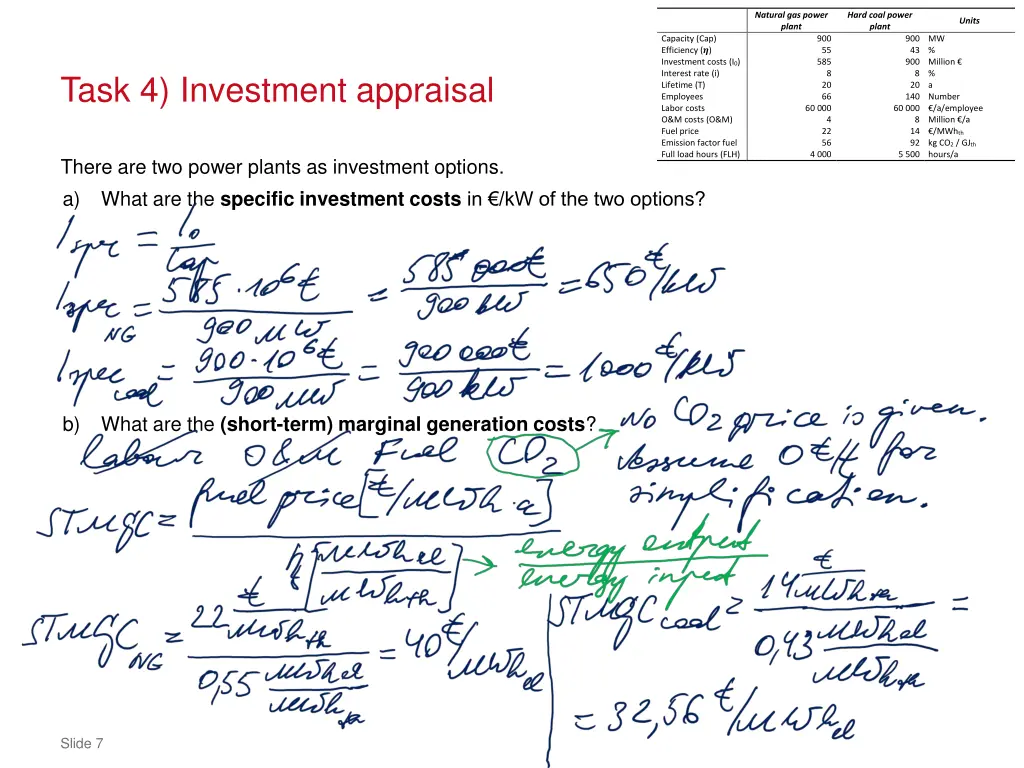 Natural gas power plant Hard coal power plant Units
Capacity (Cap) 900 900 MW
Efficiency (η) 55 43 %
Investment costs (I₀) 585 900 Million €
Interest rate (i) 8 8 %
Lifetime (T) 20 20 a
Employees 66 140 Number
Labor costs 60 000 60 000 €/a/employee
O&M costs (O&M) 4 8 Million €/a
Fuel price 22 14 €/MWhth
Emission factor fuel 56 92 kg CO₂ / GJth
Full load hours (FLH) 4 000 5 500 hours/a
Task 4) Investment appraisal
There are two power plants as investment options.
a) What are the specific investment costs in €/kW of the two options?
I spec = I₀ / Cap
I spec NG = 585·10⁶ € / 900 MW = 585 000 € / 900 kW = 650 €/kW
I spec coal = 900·10⁶ € / 900 MW = 900 000 € / 900 kW = 1000 €/kW
b) What are the (short-term) marginal generation costs?
No CO₂ price is given.
Assume 0 €/t for
simplification.
Labour O&M Fuel CO₂
STMGC = fuel price [€/MWh·a] / η [MWhel / MWhth]
energy output / energy input
STMGC NG = 22 €/MWhth / 0,55 MWhel/MWhth = 40 €/MWhel
STMGC coal = 14 €/MWhth / 0,43 MWhel/MWhth =
= 32,56 €/MWhel
Slide 7